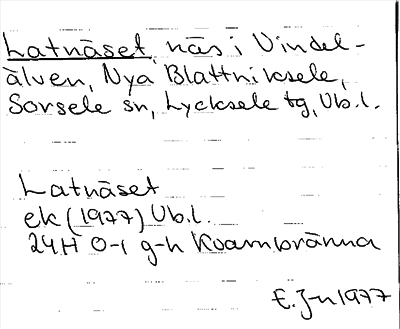 Latnäset, näs i Vindel-
älven, Nya Blattniksele,
Sorsele sn, Lycksele tg, Vb.l.
Latnäset
ek (1977) Vb.l.
24H 0-1 g-h Kvambränna
E. J-n 1977